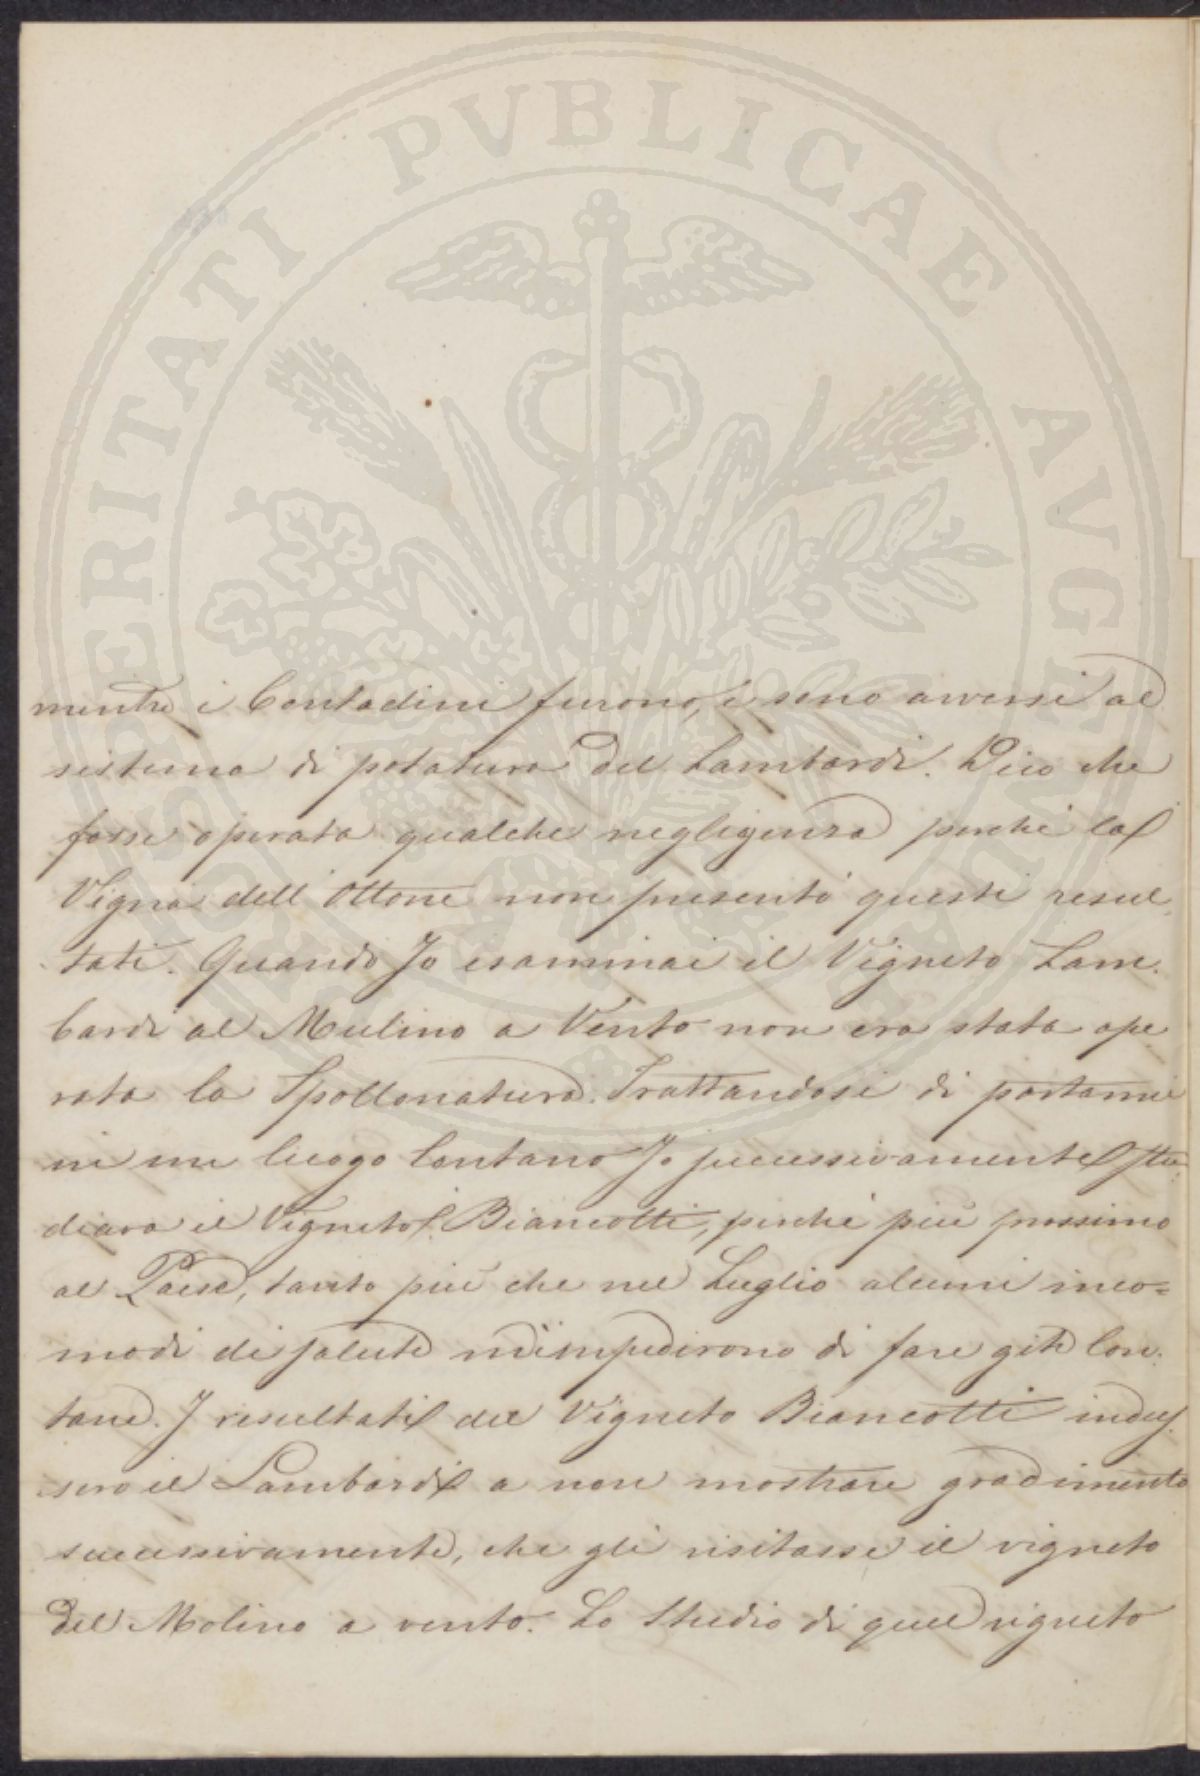 PROSPERITATI PVBLICAE AVGENDAE
mentre i Contadini furono, e sono avversi al
sistema di potatura del Lambardi. Dico che
forse operata qualche negligenza perché la
Vigna dell'Ottone non presentò questi resul
tati. Quando Jo esaminai il Vigneto Lam
bardi al Mulino a Vento non era stata ope
rata la Spollonatura. Trattandosi di portarmi
in un luogo lontano Jo successivamente stu
diava il Vigneto Biancotti, perché più prossimo
al Paese, tanto più che nel Luglio alcuni inco=
modi di salute m'impedirono di fare gite lon
tane. J resultati del Vigneto Biancotti indus
sero il Lambardi a non mostrare gradimento
successivamente, che gli visitasse il vigneto
del Molino a vento. Lo Studio di quel vigneto